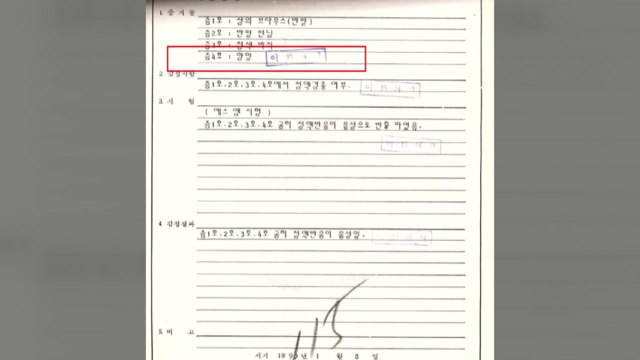 1. 증 거 물
증1호 : 상의 브라우스(반팔)
증2호 : 반팔 런닝
증3호 : 청색 바지
증4호 : 양말
2. 감정사항
증1호.2호.3호.4호에서 정액검출 여부.
3. 시 험
( 에스 엠 시험 )
증1호.2호.3호.4호 공히 정액반응이 음성으로 반출 하였음.
4. 감정결과
증1호.2호.3호.4호 공히 정액반응이 음성임.
5. 비 고
115
서기 1990년 1 월 8 일